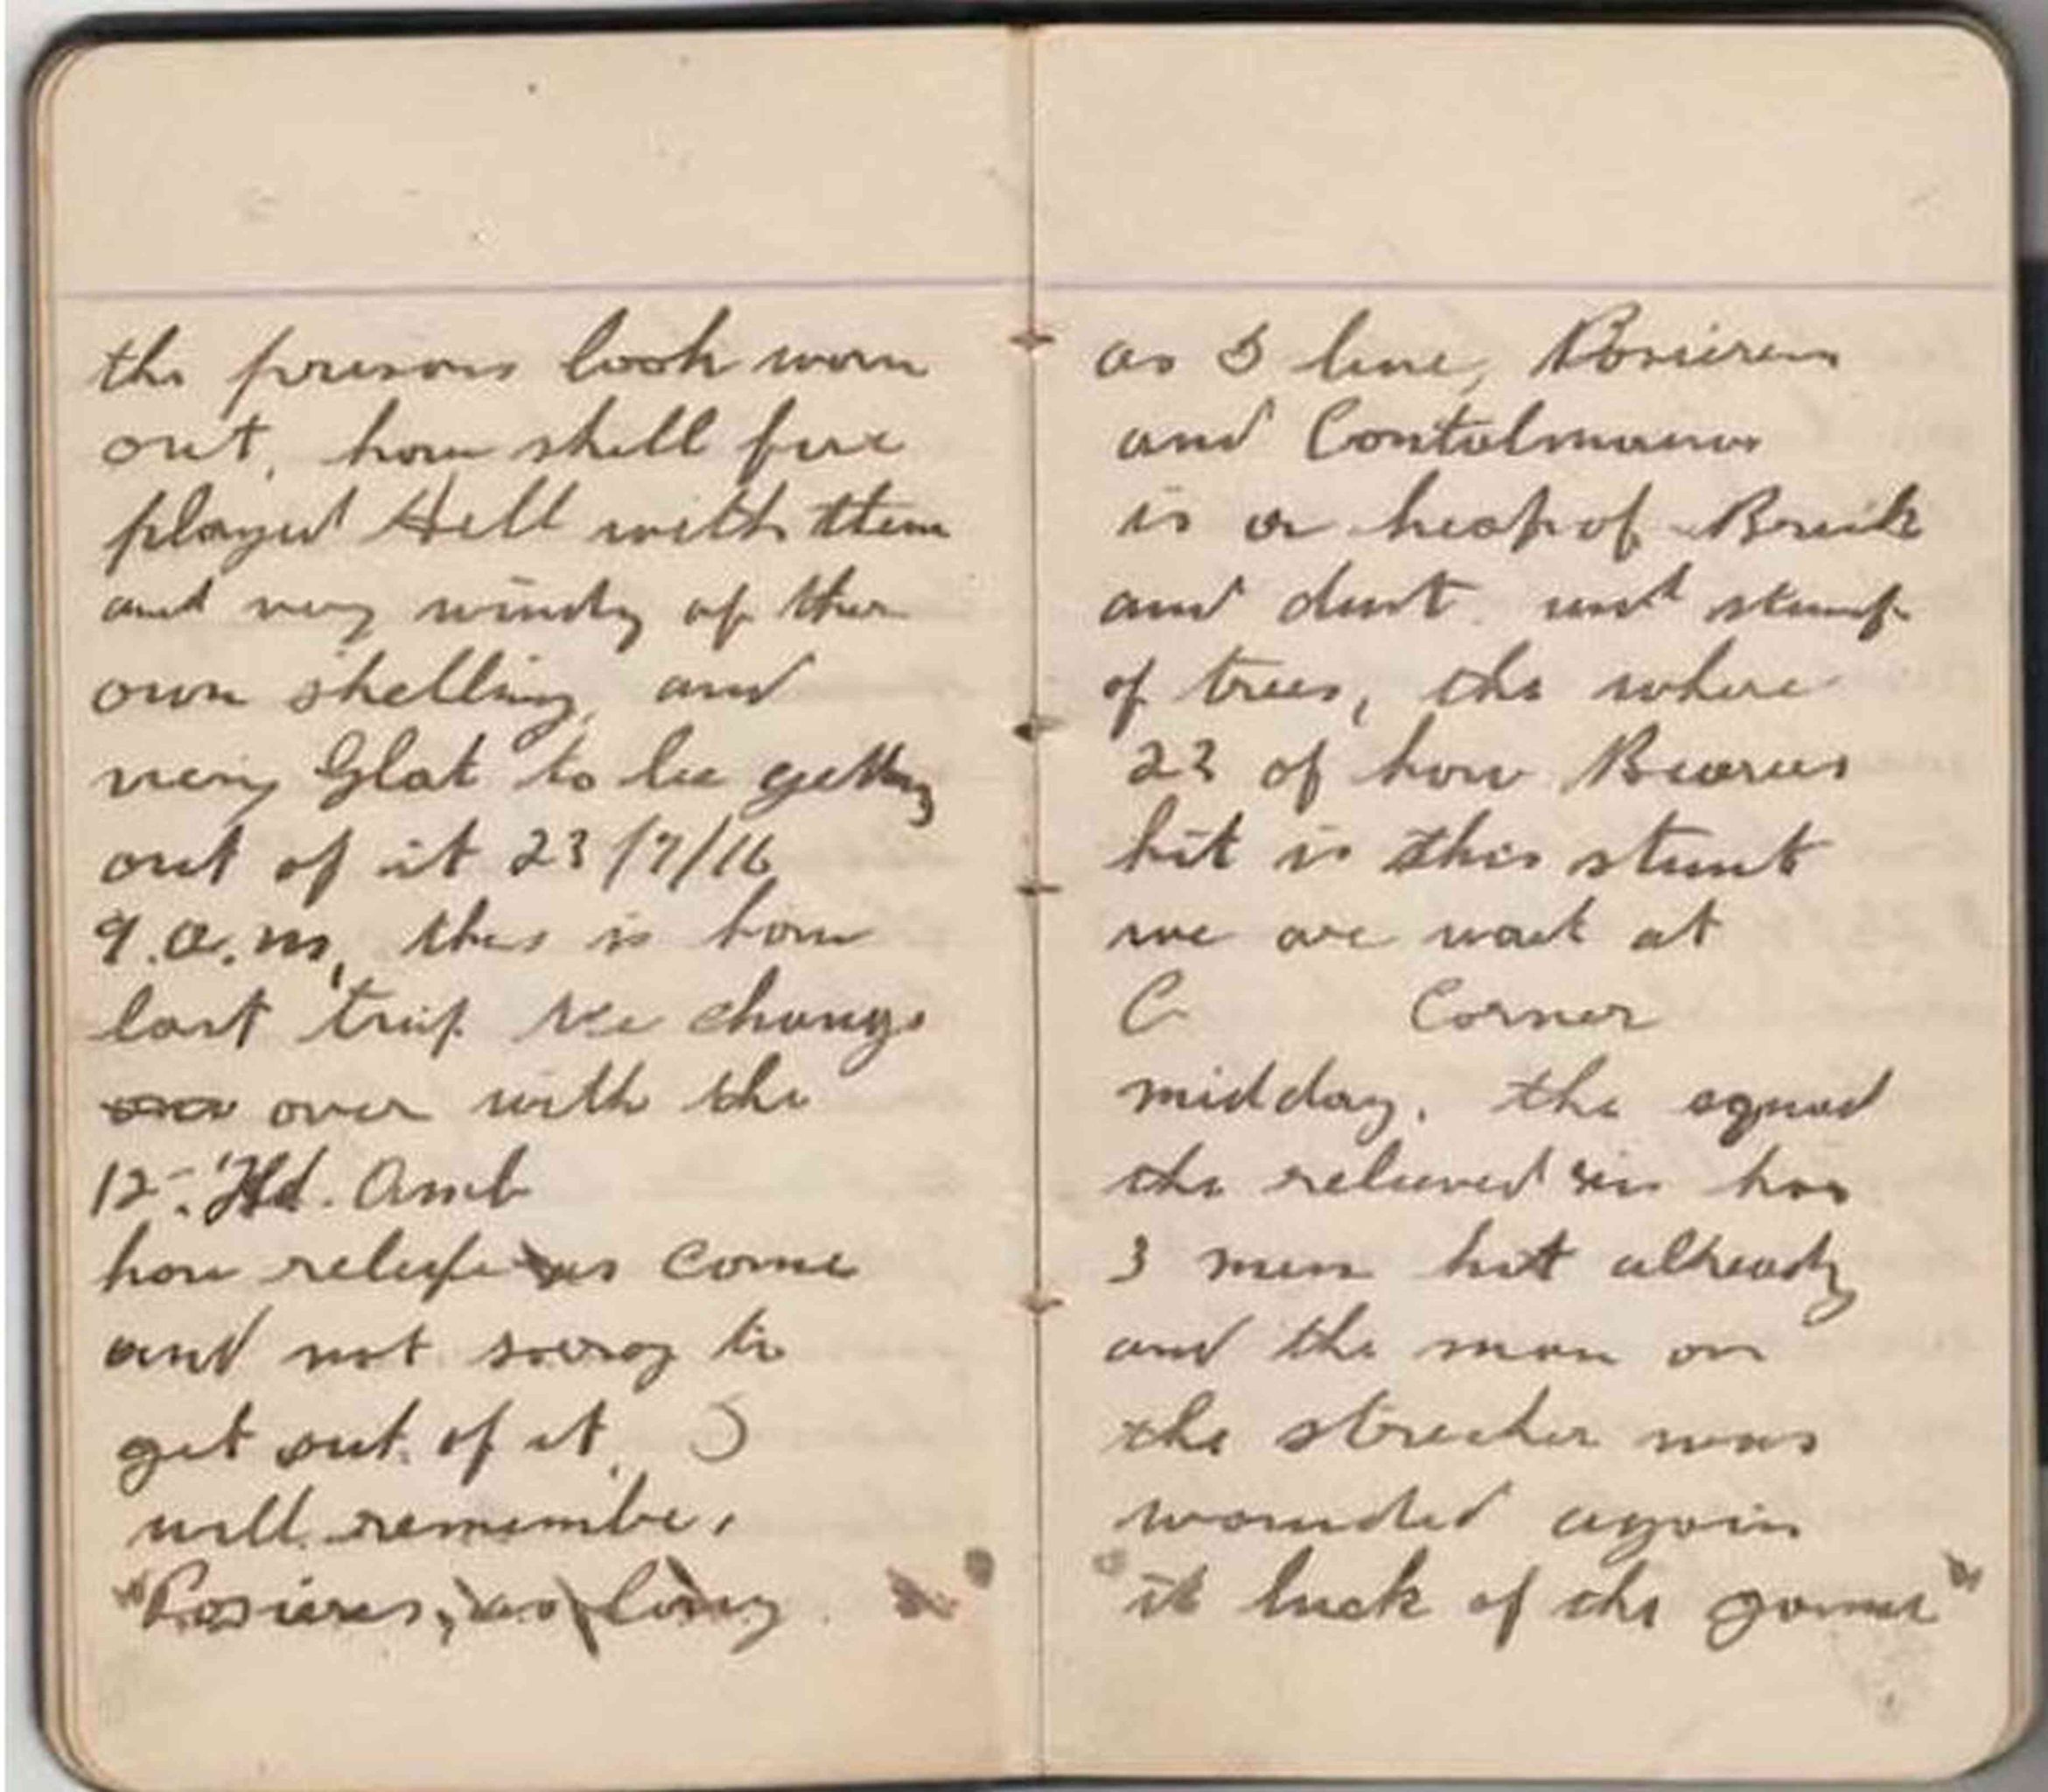 the prisons look worn
out, how shell fire
played Hell with them
and very windy of ther
own shelling, and
very Glat to be getting
out of it 23/7/16
9.a.m, this is how
last trip we change
over with the
12. Fld. Amb
how relife as come
and not sorray to
get out of it, I
will remember
"Posieres, as long
as I live, Posieres
and Contalmasion
is a heap of Brick
and dust and stump
of trees, the where
22 of how Bearers
hit is this stunt
we are wait at
C Corner
midday. the squad
the relieved has
3 men hit already
and the man on
the strecher was
wounded again
it luck of the game"